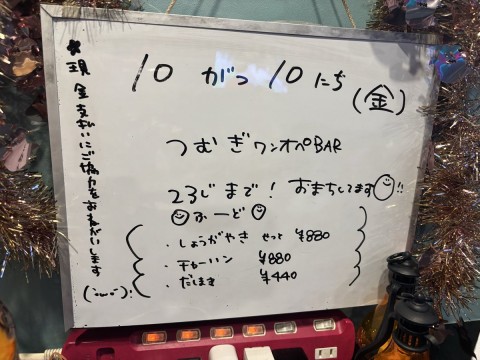 10がつ10にち
(金)
つむぎワンオペBAR
23じまで! おまちしてます!!
ふーど
・しょうがやき せっと ¥880
・チャーハン ¥880
・だしまき ¥440
*現金支払いにご協力をおねがいします